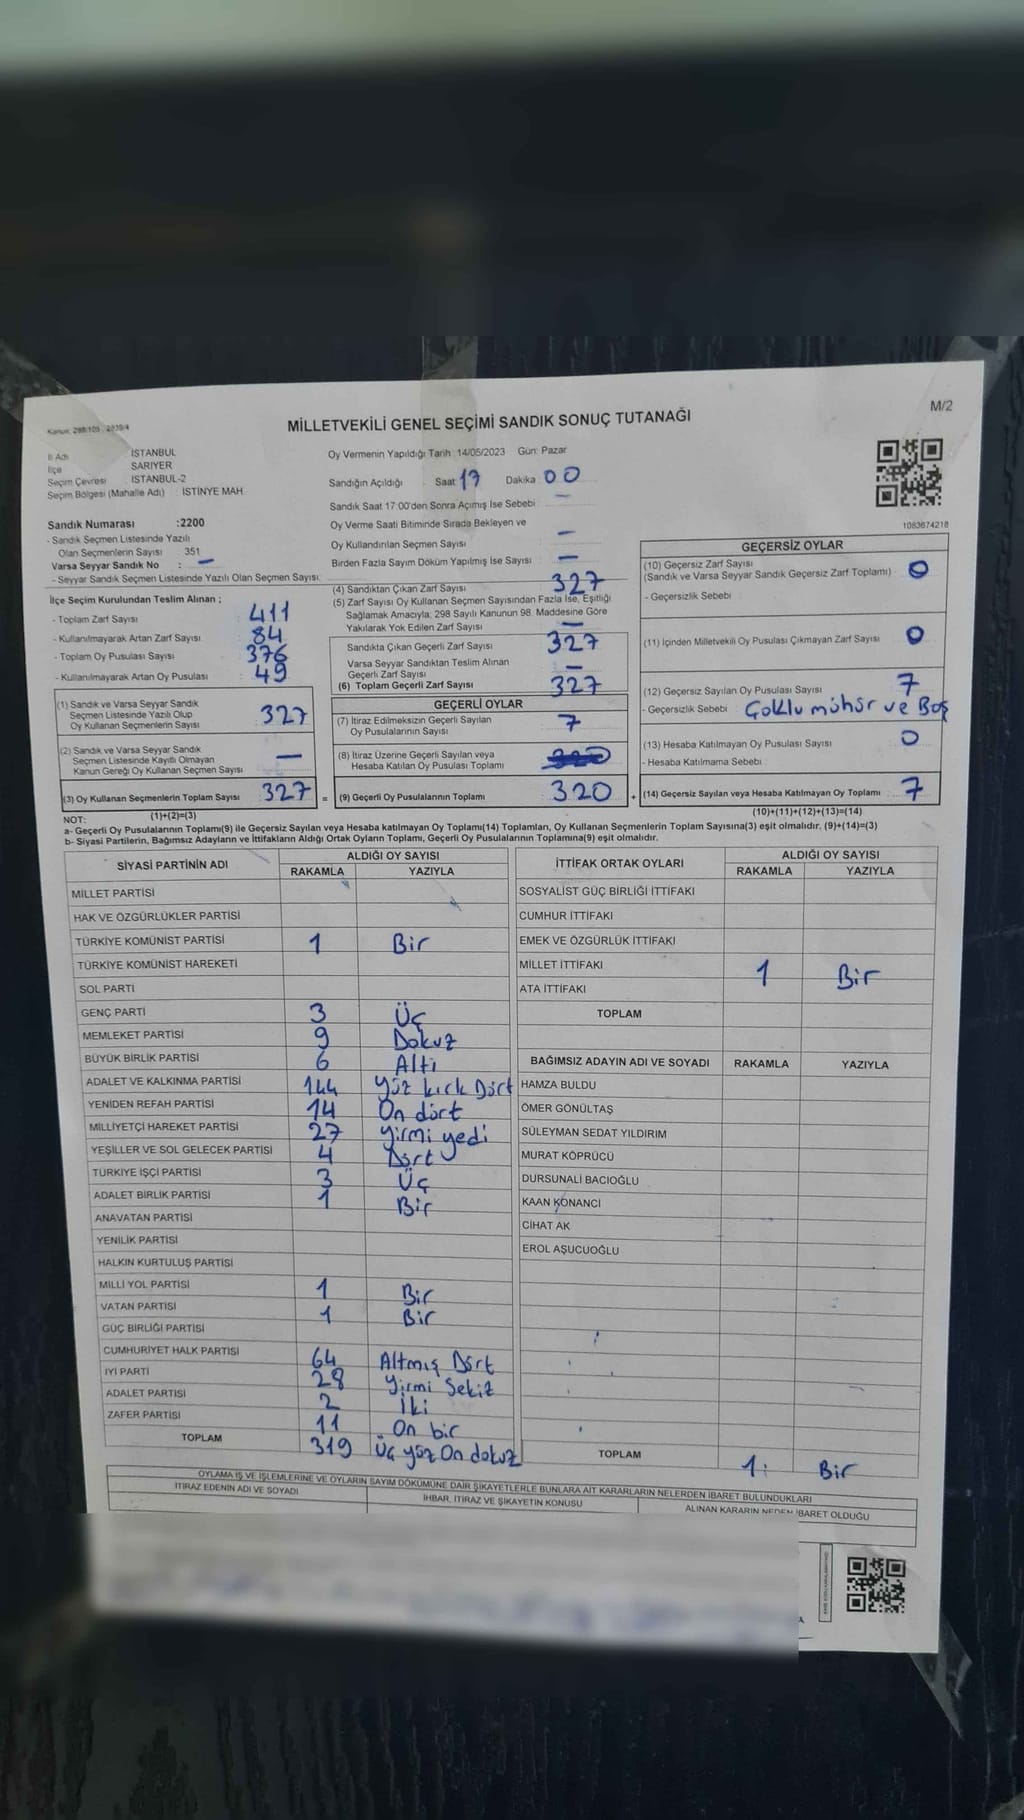 Kanun: 298/105 - 2839/4
MİLLETVEKİLİ GENEL SEÇİMİ SANDIK SONUÇ TUTANAĞI
M/2
İl Adı İSTANBUL
İlçe SARIYER
Seçim Çevresi İSTANBUL-2
Seçim Bölgesi (Mahalle Adı) : İSTİNYE MAH
Sandık Numarası :2200
- Sandık Seçmen Listesinde Yazılı
Olan Seçmenlerin Sayısı : 351
Varsa Seyyar Sandık No : —
- Seyyar Sandık Seçmen Listesinde Yazılı Olan Seçmen Sayısı:
İlçe Seçim Kurulundan Teslim Alınan ;
- Toplam Zarf Sayısı 411
- Kullanılmayarak Artan Zarf Sayısı 84
- Toplam Oy Pusulası Sayısı 376
- Kullanılmayarak Artan Oy Pusulası 49
(1) Sandık ve Varsa Seyyar Sandık
Seçmen Listesinde Yazılı Olup
Oy Kullanan Seçmenlerin Sayısı 327
(2) Sandık ve Varsa Seyyar Sandık
Seçmen Listesinde Kayıtlı Olmayan
Kanun Gereği Oy Kullanan Seçmen Sayısı —
(3) Oy Kullanan Seçmenlerin Toplam Sayısı 327 =
(1)+(2)=(3)
Oy Vermenin Yapıldığı Tarih : 14/05/2023 Gün: Pazar
Sandığın Açıldığı Saat 17 Dakika : 00
Sandık Saat 17:00'den Sonra Açımış İse Sebebi : —
Oy Verme Saati Bitiminde Sırada Bekleyen ve
Oy Kullandırılan Seçmen Sayısı —
Birden Fazla Sayım Döküm Yapılmış İse Sayısı —
(4) Sandıktan Çıkan Zarf Sayısı 327
(5) Zarf Sayısı Oy Kullanan Seçmen Sayısından Fazla İse, Eşitliği
Sağlamak Amacıyla; 298 Sayılı Kanunun 98. Maddesine Göre
Yakılarak Yok Edilen Zarf Sayısı —
Sandıkta Çıkan Geçerli Zarf Sayısı 327
Varsa Seyyar Sandıktan Teslim Alınan
Geçerli Zarf Sayısı —
(6) Toplam Geçerli Zarf Sayısı 327
GEÇERLİ OYLAR
(7) İtiraz Edilmeksizin Geçerli Sayılan
Oy Pusulasının Sayısı 7
(8) İtiraz Üzerine Geçerli Sayılan veya
Hesaba Katılan Oy Pusulası Toplamı
(9) Geçerli Oy Pusulalarının Toplamı 320 +
1083674218
GEÇERSİZ OYLAR
(10) Geçersiz Zarf Sayısı
(Sandık ve Varsa Seyyar Sandık Geçersiz Zarf Toplamı) 0
- Geçersizlik Sebebi
(11) İçinden Milletvekili Oy Pusulası Çıkmayan Zarf Sayısı 0
(12) Geçersiz Sayılan Oy Pusulası Sayısı 7
- Geçersizlik Sebebi Çoklu mühür ve Boş
(13) Hesaba Katılmayan Oy Pusulası Sayısı 0
- Hesaba Katılmama Sebebi
(14) Geçersiz Sayılan veya Hesaba Katılmayan Oy Toplamı 7
(10)+(11)+(12)+(13)=(14)
NOT:
a- Geçerli Oy Pusulalarının Toplamı(9) ile Geçersiz Sayılan veya Hesaba katılmayan Oy Toplamı(14) Toplamları, Oy Kullanan Seçmenlerin Toplam Sayısına(3) eşit olmalıdır. (9)+(14)=(3)
b- Siyasi Partilerin, Bağımsız Adayların ve İttifakların Aldığı Ortak Oyların Toplamı, Geçerli Oy Pusulalarının Toplamına(9) eşit olmalıdır.
SİYASİ PARTİNİN ADI ALDIĞI OY SAYISI
RAKAMLA YAZIYLA
MİLLET PARTİSİ
HAK VE ÖZGÜRLÜKLER PARTİSİ
TÜRKİYE KOMÜNİST PARTİSİ 1 Bir
TÜRKİYE KOMÜNİST HAREKETİ
SOL PARTİ
GENÇ PARTİ 3 Üç
MEMLEKET PARTİSİ 9 Dokuz
BÜYÜK BİRLİK PARTİSİ 6 Altı
ADALET VE KALKINMA PARTİSİ 144 Yüz kırk Dört
YENİDEN REFAH PARTİSİ 14 On dört
MİLLİYETÇİ HAREKET PARTİSİ 27 Yirmi yedi
YEŞİLLER VE SOL GELECEK PARTİSİ 4 Dört
TÜRKİYE İŞÇİ PARTİSİ 3 Üç
ADALET BİRLİK PARTİSİ 1 Bir
ANAVATAN PARTİSİ
YENİLİK PARTİSİ
HALKIN KURTULUŞ PARTİSİ
MİLLİ YOL PARTİSİ 1 Bir
VATAN PARTİSİ 1 Bir
GÜÇ BİRLİĞİ PARTİSİ
CUMHURİYET HALK PARTİSİ 64 Altmış Dört
İYİ PARTİ 28 Yirmi Sekiz
ADALET PARTİSİ 2 İki
ZAFER PARTİSİ 11 On bir
TOPLAM 319 Üç yüz On dokuz
İTTİFAK ORTAK OYLARI ALDIĞI OY SAYISI
RAKAMLA YAZIYLA
SOSYALİST GÜÇ BİRLİĞİ İTTİFAKI
CUMHUR İTTİFAKI
EMEK VE ÖZGÜRLÜK İTTİFAKI
MİLLET İTTİFAKI 1 Bir
ATA İTTİFAKI
TOPLAM
BAĞIMSIZ ADAYIN ADI VE SOYADI RAKAMLA YAZIYLA
HAMZA BULDU
ÖMER GÖNÜLTAŞ
SÜLEYMAN SEDAT YILDIRIM
MURAT KÖPRÜCÜ
DURSUNALİ BACIOĞLU
KAAN KONANCI
CİHAT AK
EROL AŞUCUOĞLU
TOPLAM 1 Bir
OYLAMA İŞ VE İŞLEMLERİNE VE OYLARIN SAYIM DÖKÜMÜNE DAİR ŞİKAYETLERLE BUNLARA AİT KARARLARIN NELERDEN İBARET BULUNDUKLARI
İTİRAZ EDENİN ADI VE SOYADI İHBAR, İTİRAZ VE ŞİKAYETİN KONUSU ALINAN KARARIN NEDEN İBARET OLDUĞU